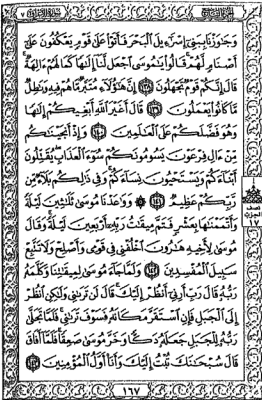 وَجَٰوَزْنَا بِبَنِىٓ إِسْرَٰٓءِيلَ ٱلْبَحْرَ فَأَتَوْا۟ عَلَىٰ قَوْمٍ يَعْكُفُونَ عَلَىٰٓ
أَصْنَامٍ لَّهُمْ قَالُوا۟ يَٰمُوسَى ٱجْعَل لَّنَآ إِلَٰهًا كَمَا لَهُمْ ءَالِهَةٌ
قَالَ إِنَّكُمْ قَوْمٌ تَجْهَلُونَ ١٣٨ إِنَّ هَٰٓؤُلَآءِ مُتَبَّرٌ مَّا هُمْ فِيهِ وَبَٰطِلٌ
مَّا كَانُوا۟ يَعْمَلُونَ ١٣٩ قَالَ أَغَيْرَ ٱللَّهِ أَبْغِيكُمْ إِلَٰهًا
وَهُوَ فَضَّلَكُمْ عَلَى ٱلْعَٰلَمِينَ ١٤٠ وَإِذْ أَنجَيْنَٰكُم
مِّنْ ءَالِ فِرْعَوْنَ يَسُومُونَكُمْ سُوٓءَ ٱلْعَذَابِ يُقَتِّلُونَ
أَبْنَآءَكُمْ وَيَسْتَحْيُونَ نِسَآءَكُمْ وَفِى ذَٰلِكُم بَلَآءٌ مِّن
رَّبِّكُمْ عَظِيمٌ ١٤١ ۞ وَوَٰعَدْنَا مُوسَىٰ ثَلَٰثِينَ لَيْلَةً
وَأَتْمَمْنَٰهَا بِعَشْرٍ فَتَمَّ مِيقَٰتُ رَبِّهِۦٓ أَرْبَعِينَ لَيْلَةً وَقَالَ
مُوسَىٰ لِأَخِيهِ هَٰرُونَ ٱخْلُفْنِى فِى قَوْمِى وَأَصْلِحْ وَلَا تَتَّبِعْ
سَبِيلَ ٱلْمُفْسِدِينَ ١٤٢ وَلَمَّا جَآءَ مُوسَىٰ لِمِيقَٰتِنَا وَكَلَّمَهُۥ
رَبُّهُۥ قَالَ رَبِّ أَرِنِىٓ أَنظُرْ إِلَيْكَ قَالَ لَن تَرَىٰنِى وَلَٰكِنِ ٱنظُرْ
إِلَى ٱلْجَبَلِ فَإِنِ ٱسْتَقَرَّ مَكَانَهُۥ فَسَوْفَ تَرَىٰنِى فَلَمَّا تَجَلَّىٰ
رَبُّهُۥ لِلْجَبَلِ جَعَلَهُۥ دَكًّا وَخَرَّ مُوسَىٰ صَعِقًا فَلَمَّآ أَفَاقَ
قَالَ سُبْحَٰنَكَ تُبْتُ إِلَيْكَ وَأَنَا۠ أَوَّلُ ٱلْمُؤْمِنِينَ ١٤٣
نصف
الحزب
١٧
١٦٧